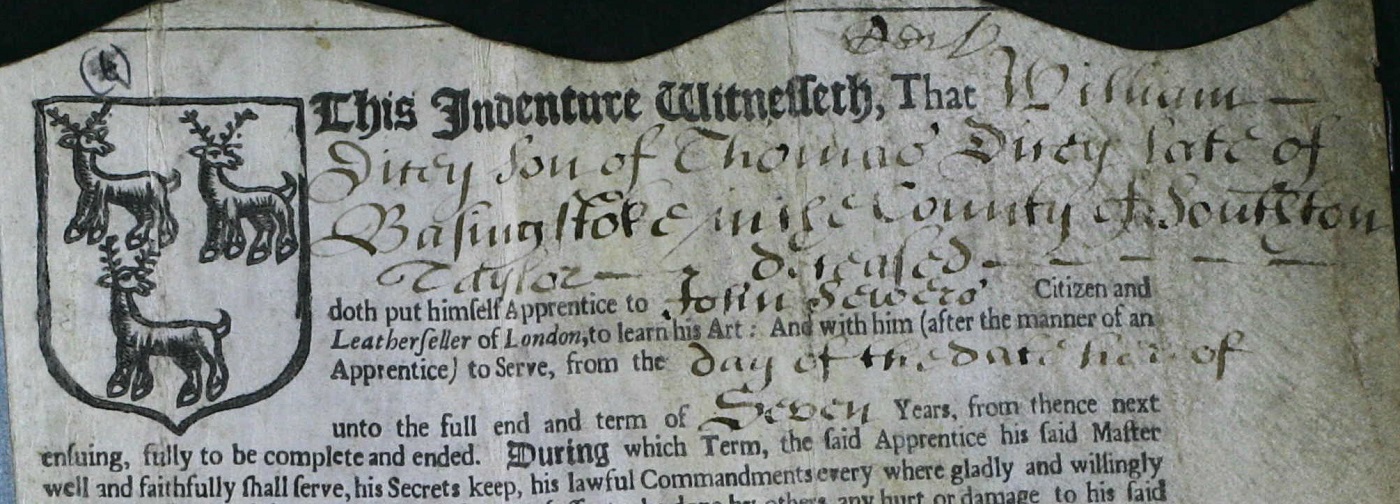 This Indenture Witnesseth, That William
Ditey son of Thomas Ditey late of
Basingstoke in the County of Southton
Taylor deceased
doth put himself Apprentice to John Sewers Citizen and
Leatherseller of London, to learn his Art: And with him (after the manner of an
Apprentice) to Serve, from the day of the date hereof
unto the full end and term of Seven Years, from thence next
ensuing, fully to be complete and ended. During which Term, the said Apprentice his said Master
well and faithfully shall serve, his Secrets keep, his lawful Commandments every where gladly and willingly
others any hurt or damage to his said